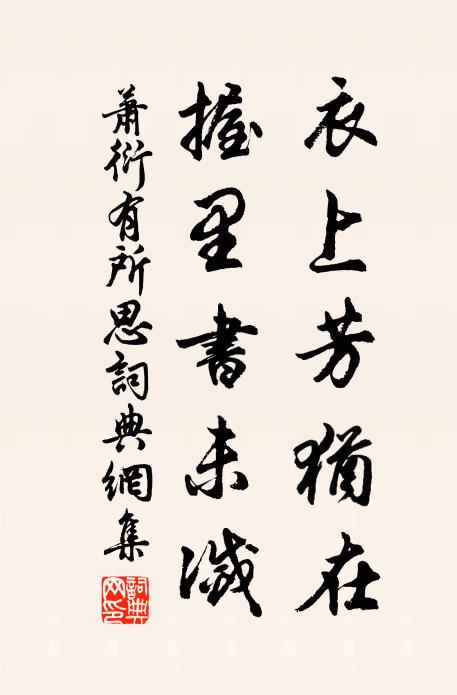 衣上芳猶在
握里書未滅
蕭衍有所思詞典網集
詞典網印